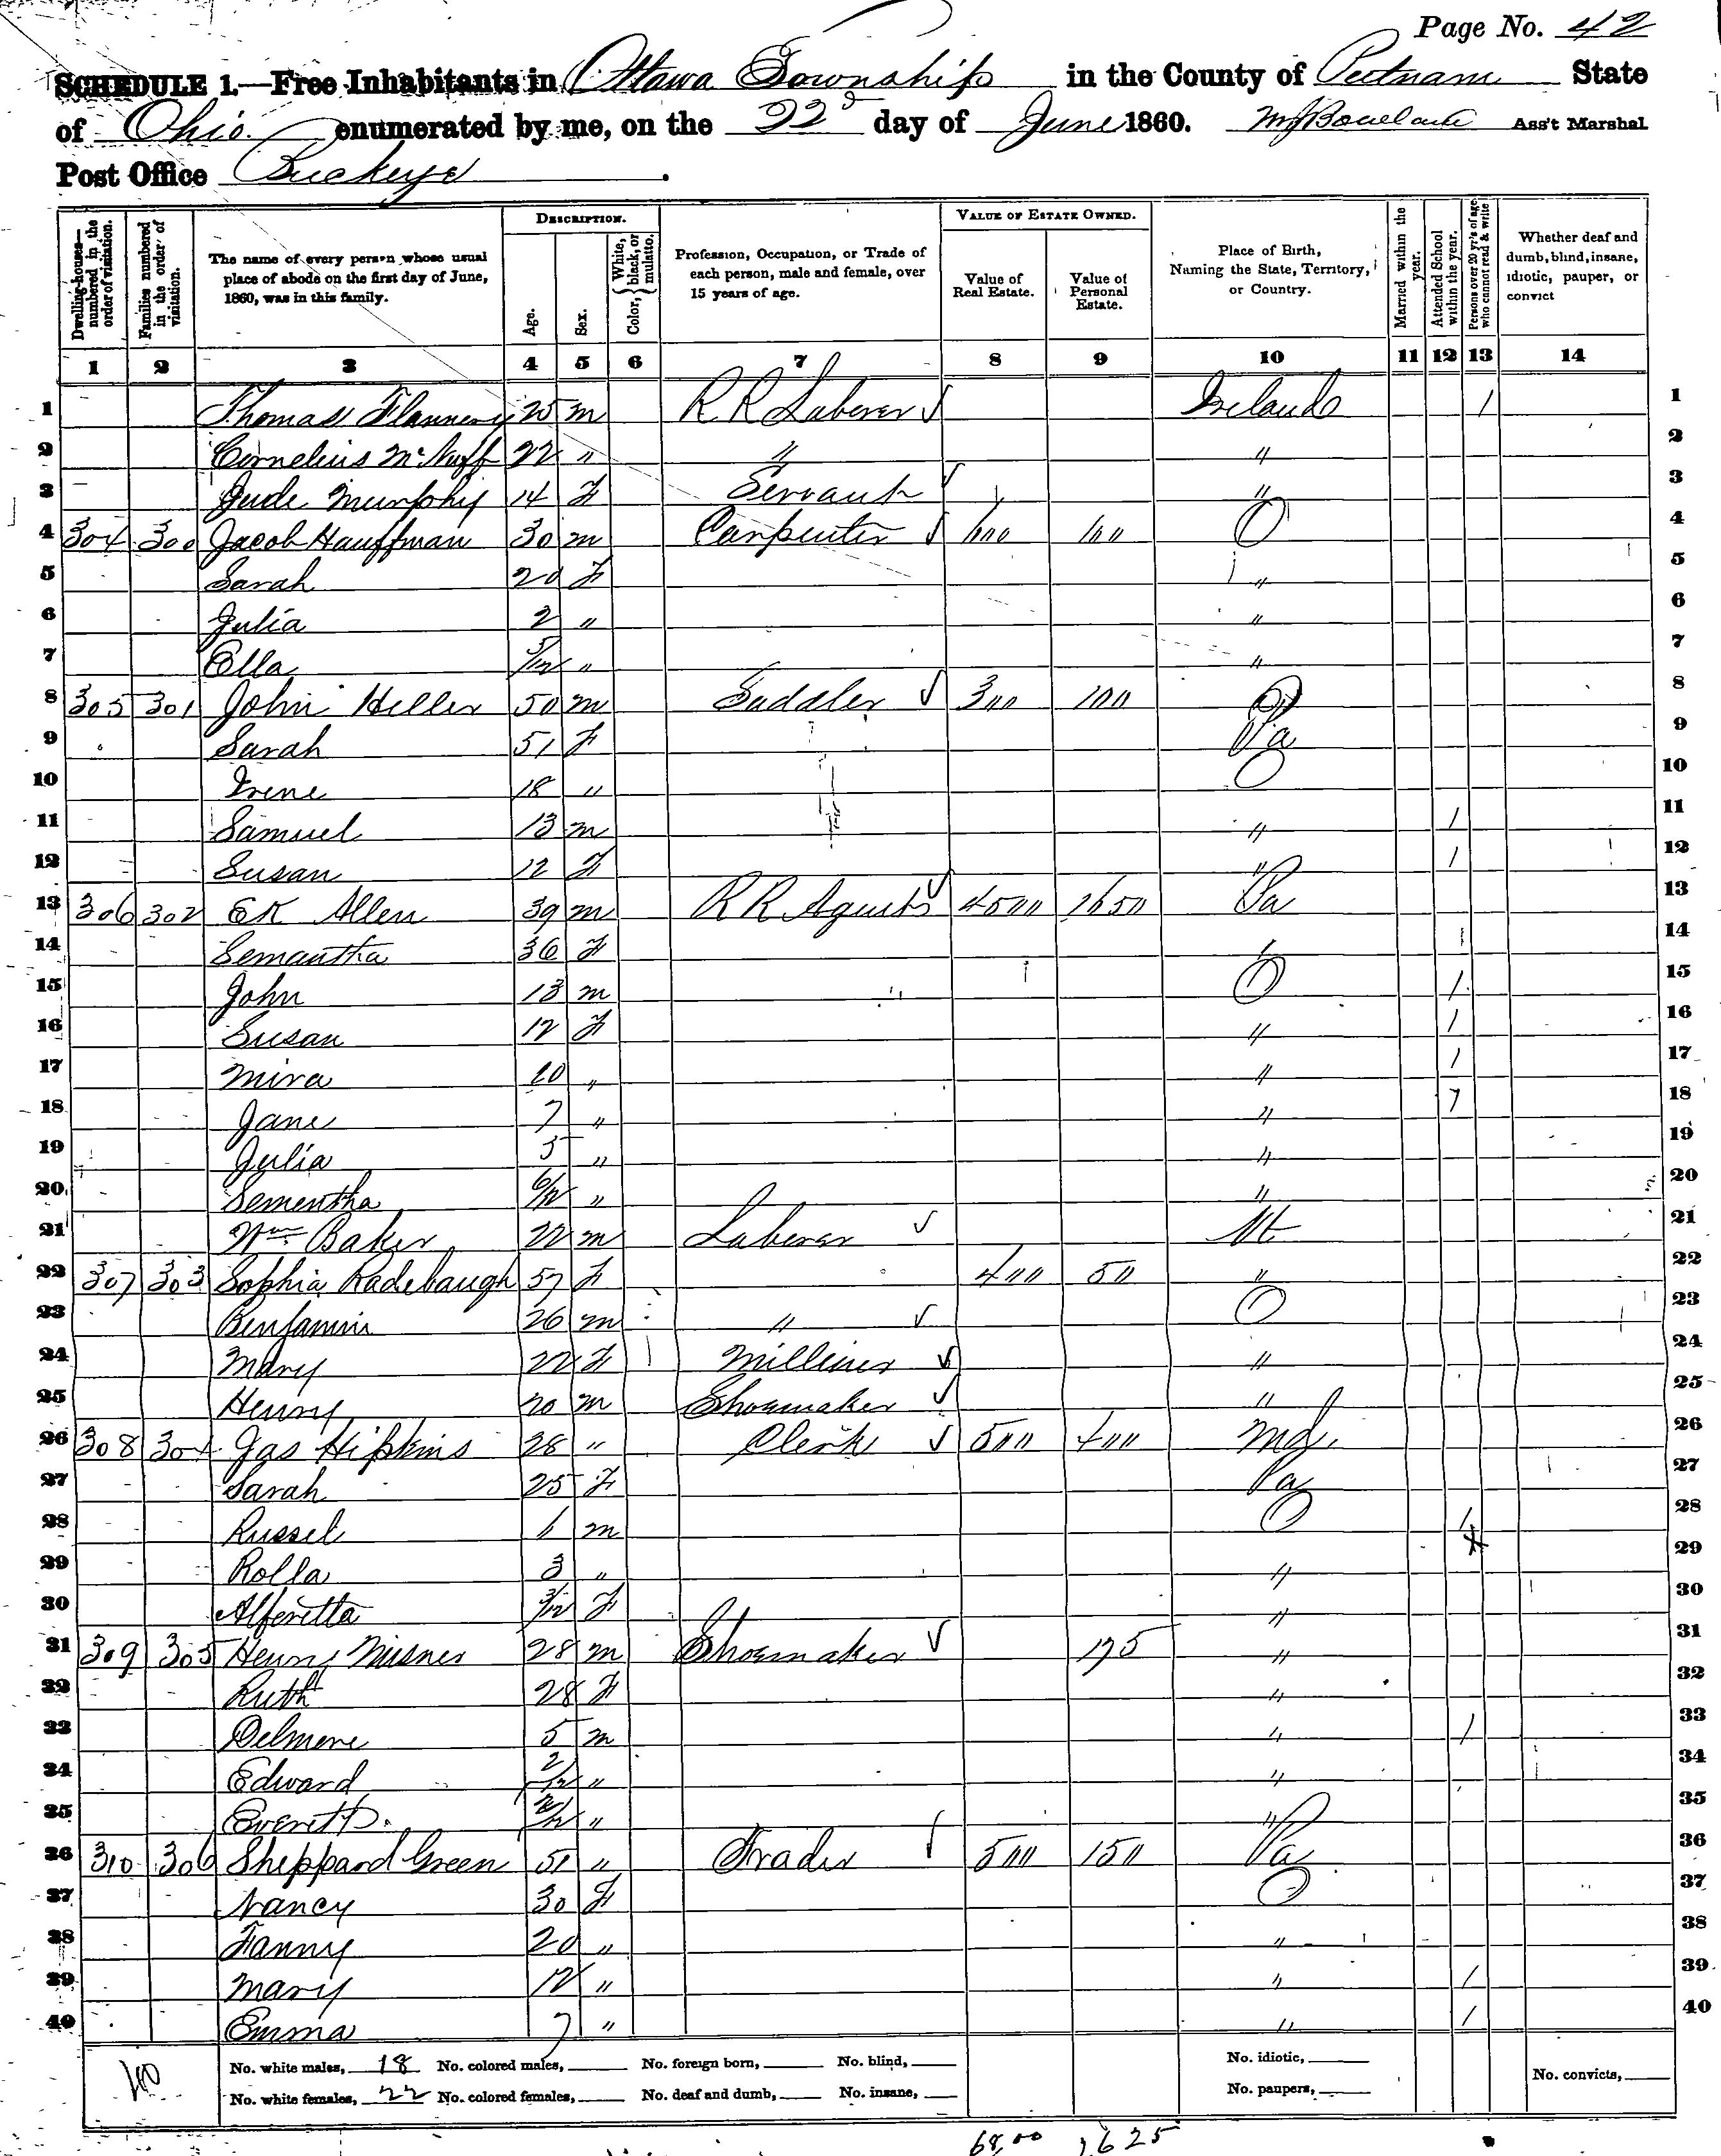 Page No. 42
SCHEDULE 1.—Free Inhabitants in Ottawa Township in the County of Putnam State
of Ohio. enumerated by me, on the 22d day of June 1860. Ass't Marshal
Post Office Buckeye.
Dwelling-houses—numbered in the order of visitation.
Families numbered in the order of visitation.
The name of every person whose usual place of abode on the first day of June, 1860, was in this family.
DESCRIPTION.
Age.
Sex.
Color, { White, black, or mulatto.
Profession, Occupation, or Trade of each person, male and female, over 15 years of age.
VALUE OF ESTATE OWNED.
Value of Real Estate.
Value of Personal Estate.
Place of Birth, Naming the State, Territory, or Country.
Married within the year.
Attended School within the year.
Persons over 20 yr's of age who cannot read & write
Whether deaf and dumb, blind, insane, idiotic, pauper, or convict
1 2 3 4 5 6 7 8 9 10 11 12 13 14
1 Thomas Flannery 25 m R R Laborer √ Ireland / 1
2 Cornelius 22 " " " 2
3 Jude Murphy 14 F Servant √ " 3
4 304 300 Jacob Hauffman 30 m Carpenter √ O 4
5 Sarah 20 F " 5
6 Julia 2 " " 6
7 Ella 5/12 " " 7
8 305 301 John Heller 50 m Saddler √ 300 100 O 8
9 Sarah 51 F Pa 9
10 Irene 18 " O 10
11 Samuel 13 m " / 11
12 Susan 12 F " / 12
13 306 302 E K Allen 39 m R R Agent √ 4500 1650 Pa 13
14 Semantha 36 F " 14
15 John 13 m O / 15
16 Susan 12 F " / 16
17 Mira 10 " " / 17
18 Jane 7 " " 18
19 Julia 5 " " 19
20 Sementha 6/12 " " 20
21 Wm Baker 22 m Laborer √ 21
22 307 303 Sophia Radebaugh 57 F 400 50 " 22
23 Benjamin 26 m " √ O 23
24 Mary 22 F Milliner √ " 24
25 Henry 20 m Shoemaker √ " 25
26 308 304 Jas Hipkins 28 " Clerk √ 500 400 Md. 26
27 Sarah 25 F Pa 27
28 Russel m O / 28
29 Rolla 3 " " 29
30 Alferetta 3/12 F " 30
31 309 305 Henry Misner 28 m Shoemaker √ 175 " 31
32 Ruth 28 F " 32
33 Delmere 5 m " / 33
34 Edward 2/12 " " 34
35 Everett. 2/12 " " 35
36 310 306 Sheppard Green 51 " Trader √ 500 150 Pa 36
37 Nancy 30 F O 37
38 Fanny 20 " " 38
39 Mary 12 " " / 39
40 Emma 7 " " / 40
No. white males, 18 No. colored males, No. foreign born, No. blind, No. idiotic,
No. white females, 22 No. colored females, No. deaf and dumb, No. insane, No. paupers, No. convicts,